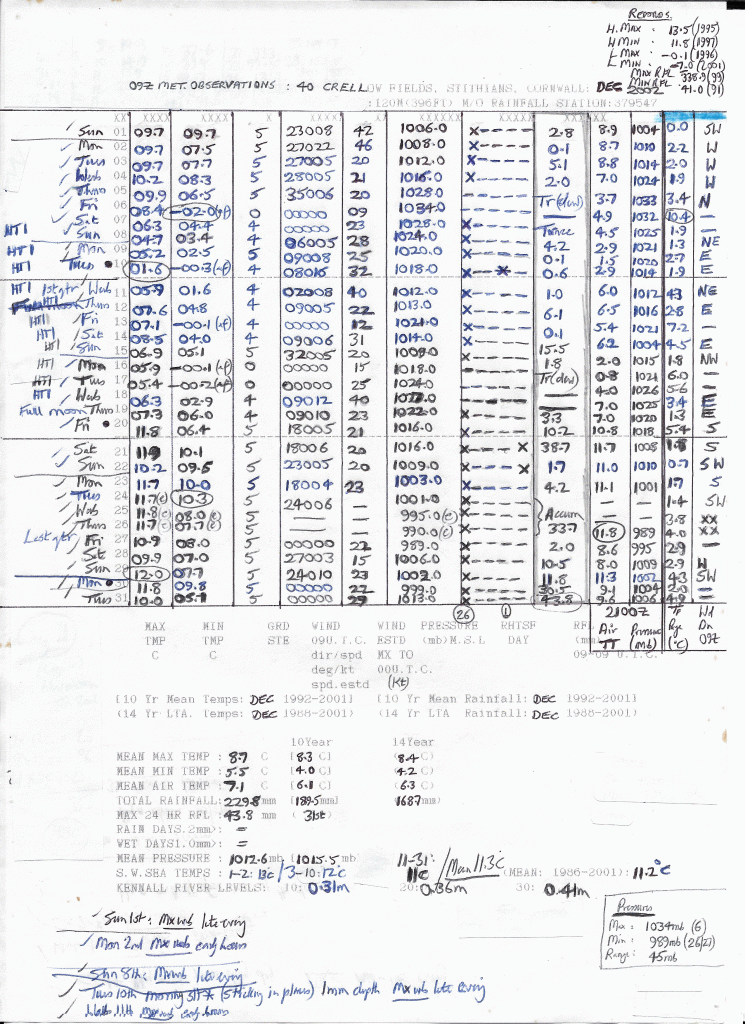 Records.
H. MAX : 13.5 (1995)
H MIN : 11.8 (1997)
L MAX : -0.1 (1996)
L MIN : -7.0 (2001)
MAX RFL 338.9 (93)
MIN RFL 41.0 (91)
09Z MET. OBSERVATIONS : 40 CRELLOW FIELDS, STITHIANS, CORNWALL: DEC 2002
:120M(396FT) M/O RAINFALL STATION:379547
XX XXXX XXXX X XXXXX XX XXXXXX XXXXX XXXX
Sun 01 09.7 09.7 5 23008 42 1006.0 X---- 2.8 8.9 1004 0.0 SW
Mon 02 09.7 07.5 5 27022 46 1008.0 X---- 0.1 8.7 1010 2.2 W
Tues 03 09.7 07.7 5 27005 20 1012.0 X---- 5.1 8.8 1014 2.0 W
Wed 04 10.2 08.3 5 28005 21 1016.0 X---- 2.0 7.0 1024 1.9 W
Thurs 05 09.9 06.5 5 35006 20 1028.0 ----- Tr(dew) 3.7 1033 3.4 N
Fri 06 08.4 -02.0(af) 0 00000 09 1034.0 ----- — 4.9 1032 10.4 —
Sat 07 06.3 04.4 4 00000 23 1028.0 X---- Trace 4.5 1025 1.9 —
HT1 Sun 08 04.7 03.4 4 06005 28 1024.0 X---- 4.2 2.9 1021 1.3 NE
HT1 Mon 09 05.2 02.5 4 09008 25 1020.0 X---- 0.1 1.5 1020 2.7 E
HT1 Tues 10 01.6 -00.3(af) 4 08016 32 1018.0 X--X-- 0.6 2.9 1014 1.9 E
HT1 1st qtr Wed 11 05.9 01.6 4 02008 40 1012.0 X---- 1.0 6.0 1012 4.3 NE
HT1 Thurs 12 07.6 04.8 4 09005 22 1013.0 X---- 6.1 6.5 1016 2.8 E
HT1 Fri 13 07.1 -00.1(af) 4 00000 12 1021.0 X---- 0.1 5.4 1021 7.2 —
HT1 Sat 14 08.5 04.0 4 09006 31 1014.0 X---- 15.5 6.2 1004 4.5 E
HT1 Sun 15 06.9 05.1 5 32005 20 1009.0 X---- 1.8 2.0 1015 1.8 NW
HT1 Mon 16 05.9 -00.1(af) 0 00000 15 1018.0 ----- Tr(dew) 0.8 1021 6.0 —
HT1 Tues 17 05.4 -00.2(af) 0 00000 25 1024.0 ----- — 4.0 1026 5.6 —
HT1 Wed 18 06.3 02.9 4 09012 40 1027.0 ----- — 7.0 1025 3.4 E
Full moon Thurs 19 07.3 06.0 4 09010 23 1022.0 X---- 3.3 7.0 1020 1.3 E
Fri 20 11.8 06.4 5 18005 21 1016.0 X---- 10.2 10.8 1018 5.4 S
Sat 21 11.9 10.1 5 18006 20 1016.0 X----X 38.7 11.7 1008 1.8 S
Sun 22 10.2 09.5 5 23005 20 1009.0 X----X 1.7 11.0 1010 0.7 SW
Mon 23 11.7 10.0 5 18004 23 1003.0 X---- 4.2 11.1 1001 1.7 S
Tues 24 11.7(e) 10.3 5 24006 1001.0 X---- — — 1.4 SW
Wed 25 11.8(e) 08.0(e) 5 — — 995.0(e) X---- Accum — — 3.8 XX
Thurs 26 11.7(e) 07.7(e) 5 — — 990.0(e) X---- 33.7 11.8 989 4.0 XX
Last qtr Fri 27 10.9 08.0 5 00000 22 989.0 X---- 2.0 8.6 995 2.9 —
Sat 28 09.9 07.0 5 27003 15 1006.0 X---- 10.5 8.0 1009 2.9 W
Sun 29 12.0 07.7 5 24010 23 1002.0 X---- 11.8 11.3 1002 4.3 SW
Mon 30 11.8 09.8 5 00000 22 999.0 X---- 30.5 9.1 1004 2.0 —
Tues 31 10.0 05.7 5 00000 29 1013.0 X---- 43.8 9.6 1006 4.9 —
26 1 2100Z
MAX MIN GRD WIND WIND PRESSURE RHTSF RFL Air Pressure Rge Wd
TMP TMP STE 09U.T.C. ESTD (mb)M.S.L DAY (mm) TT (mb) (°C) Dn
C C dir/spd MX TO 09-09 U.T.C. 09Z
deg/kt 00U.T.C.
spd.estd (Kt)
[10 Yr Mean Temps: DEC 1992-2001] [10 Yr Mean Rainfall: DEC 1992-2001]
(14 Yr LTA. Temps: DEC 1988-2001) (14 Yr LTA Rainfall: DEC 1988-2001)
10Year 14Year
MEAN MAX TEMP : 8.7 C [8.3 C] (8.4 C)
MEAN MIN TEMP : 5.5 C [4.0 C] (4.2 C)
MEAN AIR TEMP : 7.1 C [6.1 C] (6.3 C)
TOTAL RAINFALL: 229.8 mm [189.5mm] (168.7mm)
MAX 24 HR RFL : 43.8 mm (31st)
RAIN DAYS.2mm>: =
WET DAYS1.0mm>: =
MEAN PRESSURE : 1012.6 mb [1015.5 mb
S.W.SEA TEMPS : 1-2: 13°c / 3-10: 12°c 11-31: 11c / Mean 11.3c (MEAN: 1986-2001): 11.2°c
KENNALL RIVER LEVELS: 10: 0.31m 20: 0.36m 30: 0.41m
Pressures
Max : 1034mb (6)
Min : 989mb (26/27)
Range: 45mb
Sun 1st: Mx wd late evng
Mon 2nd Mx wd early hours
Sun 8th: Mx wd late evng
Tues 10th Morning Slt * (sticking in places) 1mm depth Mx wd late Evng
Weds 11th Mx wd early hours